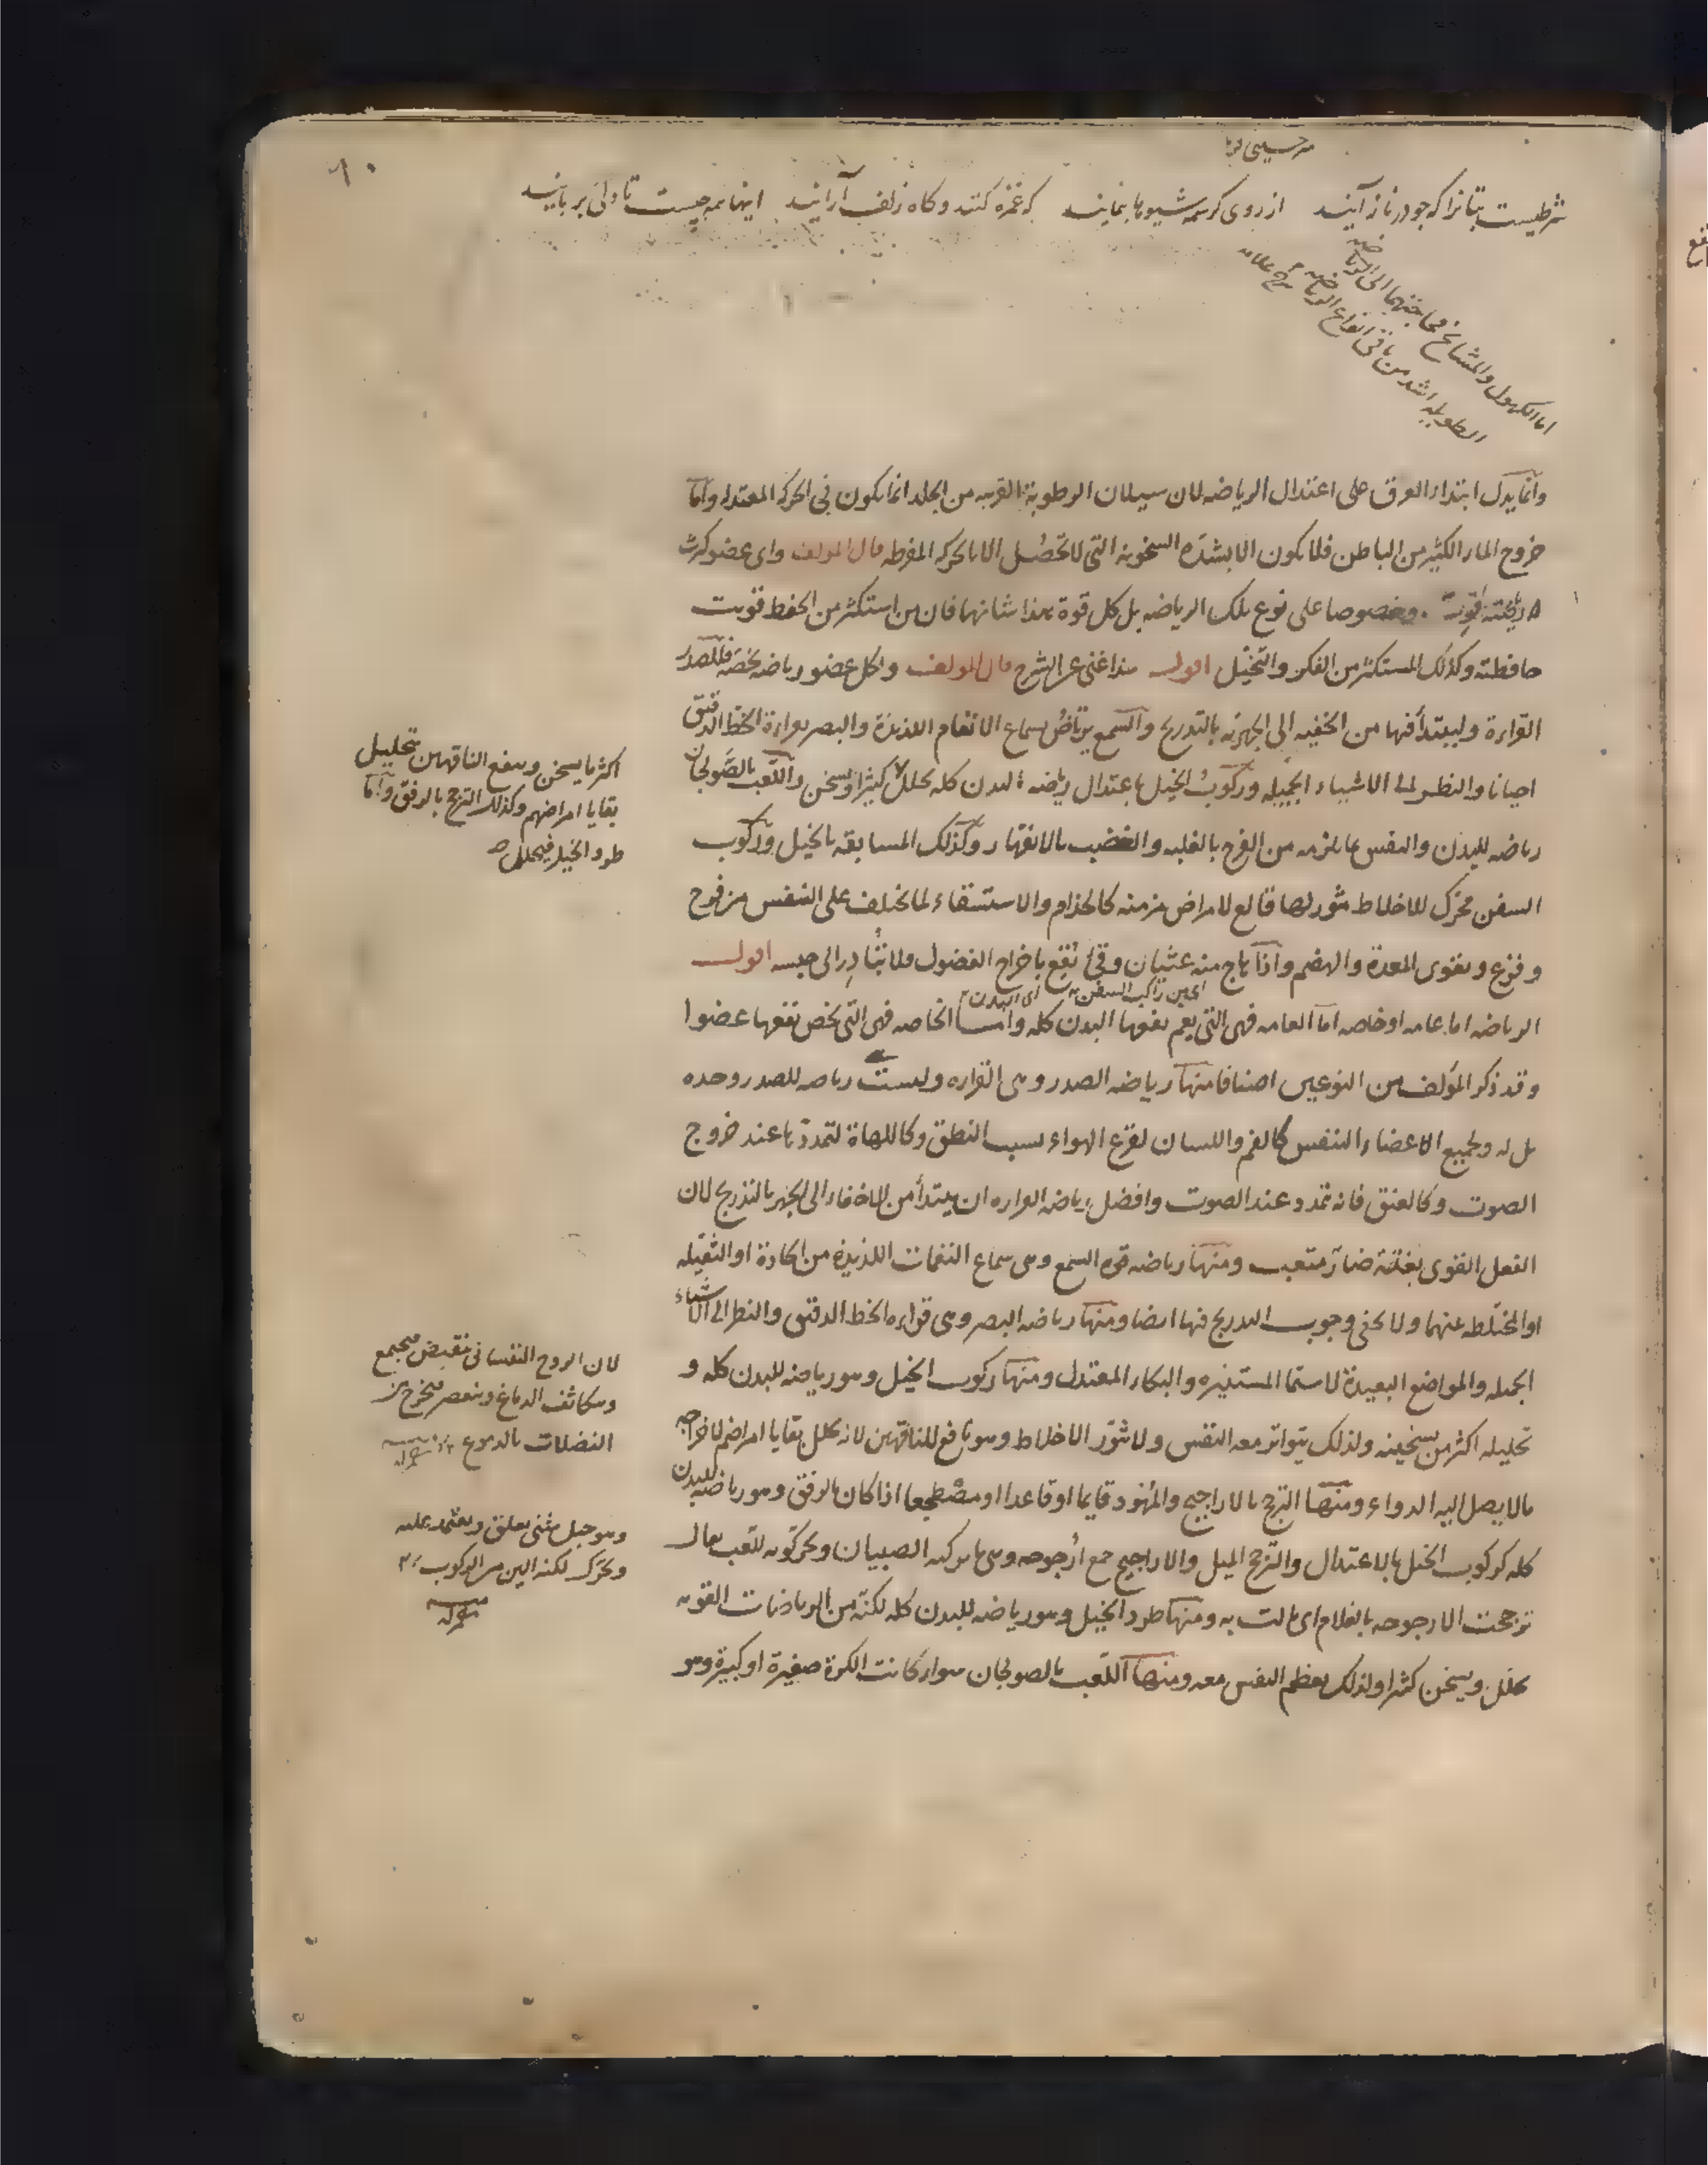 شرطیست بتانرا که چو در ناز آیند از روی کرشمه شیوها بنمایند که غمزه کنند و کاه زلف آرایند اینها همه چیست تا دلی بربایند
اما الكهول والمشايخ فحاجتهما الى الرياضة
الطويلة اشد من باقى انواع الرياضة
وانما يدل ابتداء العرق على اعتدال الرياضه لان سيلان الرطوبة القريبه من الجلد انما يكون فى الحركه المعتدله واما
خروج الماء الكثير من الباطن فلا يكون الا بشدة السخونه التى لا تحصل الا بالحركه المفرطه قال المولف واى عضو كثرت
رياضته قويت وخصوصا على نوع تلك الرياضه بل كل قوة هذا شانها فان من استكثر من الحفظ قويت
حافظته وكذلك المستكثر من الفكر والتخيل اقول هذا غنى عن الشرح قال المولف ولكل عضو رياضه تخصه فللصدر
القراءة وليبتدأ فيها من الخفيه الى الجهريه بالتدريج والسمع يرتاض بسماع الانغام اللذيذة والبصر بقراءة الخط الدقيق
احيانا والنظر الى الاشياء الجميله وركوب الخيل باعتدال رياضه للبدن كله يحلل كثيرا ويسخن واللعب بالصولجان
رياضه للبدن والنفس بما يلزمه من الفرح بالغلبه والغضب بالانقهار وكذلك المسابقه بالخيل وركوب
السفن محرك للاخلاط مثور لها قالع لامراض مزمنه كالجذام والاستسقاء لما يختلف على النفس من فرح
وفزع ويقوى المعدة والهضم واذا هاج منه غثيان وقئ نفع باخراج الفضول فلا يبادر الى حبسه اقول
اى من راكب السفن اى البدن
الرياضه اما عامه او خاصه اما العامه فهى التى يعم نفعها البدن كله واما الخاصه فهى التى يخص نفعها عضوا
وقد ذكر المؤلف من النوعين اصنافا منها رياضه الصدر وهى القراءه وليست رياضه للصدر وحده
بل له ولجميع الاعضاء التنفس كالفم واللسان لقرع الهواء بسبب النطق وكاللهاة لتمددها عند خروج
الصوت وكالعنق فانه تمدد عند الصوت وافضل رياضه القراءه ان يبتدأ من الاخفاء الى الجهر بالتدريج لان
الفعل القوى بغتة ضار متعب ومنها رياضه قوه السمع وهى سماع النغمات اللذيذة من الحادة او الثقيله
او المختلطه عنهما ولا يخفى وجوب التدريج فيها ايضا ومنها رياضه البصر وهى قراءه الخط الدقيق والنظر الى الاشياء
الجميله والمواضع البعيدة لا سيما المستنيره والبكاء المعتدل ومنها ركوب الخيل وهو رياضه للبدن كله و
تحليله اكثر من تسخينه ولذلك يتواتر معه النفس ولا تثور الاخلاط وهو نافع للناقهين لانه يحلل بقايا امراضهم لاخراجه
مالا يصل اليه الدواء ومنها الترجح بالاراجيح والمهود قايما او قاعدا او مضطجعا اذا كان بالرفق وهو رياضه للبدن
كله كركوب الخيل بالاعتدال والترجح الميل والاراجيح جمع ارجوحه وهى ما يركبه الصبيان ويحركونه للعب يقال
ترجحت الارجوحه بالغلام اى مالت به ومنها طرد الخيل وهو رياضه للبدن كله لكنه من الرياضات القويه
يحلل ويسخن كثيرا ولذلك يعظم النفس معه ومنها اللعب بالصولجان سواء كانت الكرة صغيرة او كبيرة وهو
اكثر ما يسخن وينفع الناقهين بتحليل
بقايا امراضهم وكذلك الترجح بالرفق واما
طرد الخيل فيحلل
لان الروح النفسانى ينقبض فيجتمع
ويتكاثف الدماغ وينعصر فيخرج من
الفضلات بالدموع
وهو حبل يثنى يعلق ويعتمد عليه
ويحرك لكنه الين من الركوب